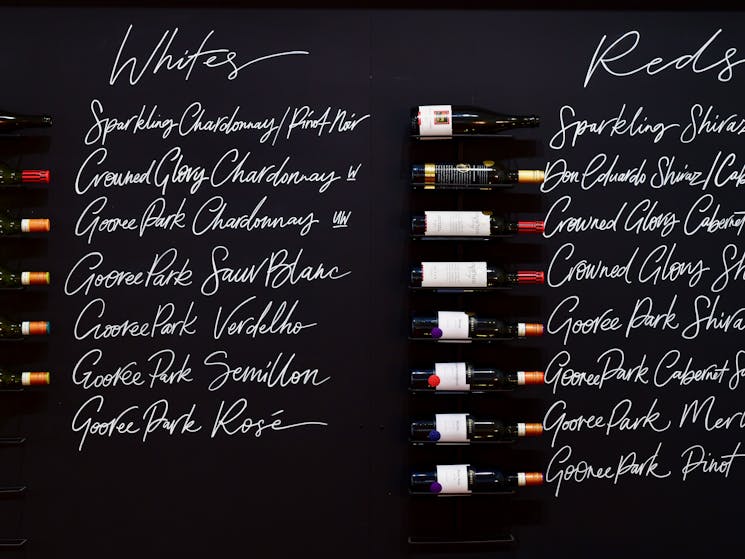 Whites
Sparkling Chardonnay/Pinot Noir
Crowned Glory Chardonnay W
Gooree Park Chardonnay UW
Gooree Park Sauv Blanc
Gooree Park Verdelho
Gooree Park Semillon
Gooree Park Rosé
Reds
Sparkling Shiraz
Don Eduardo Shiraz/Cab
Crowned Glory Cabernet
Crowned Glory Sh
Gooree Park Shira
Gooree Park Cabernet Sa
Gooree Park Merl
Gooree Park Pinot